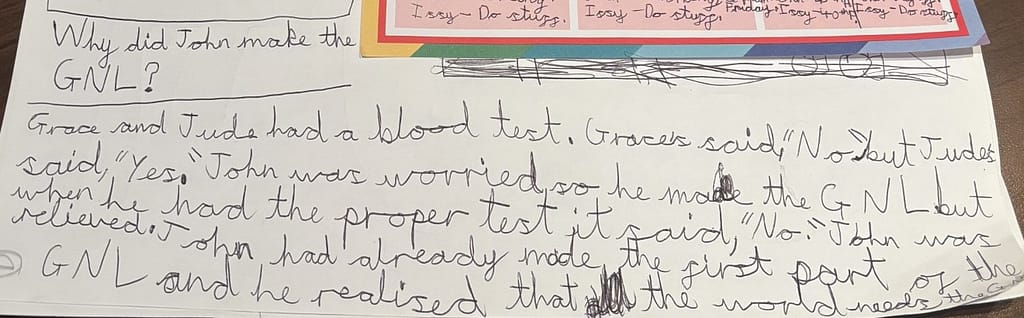 Issy - Do stuff. Issy - Do stuff. Friday: Issy - Do stuff
Why did John make the
GNL?
Grace and Jude had a blood test. Grace's said, "No" but Jude's
said, "Yes." John was worried so he made the GNL but
when he had the proper test it said, "No." John was
relieved. John had already made the first part of the
GNL and he realised that the world needs the